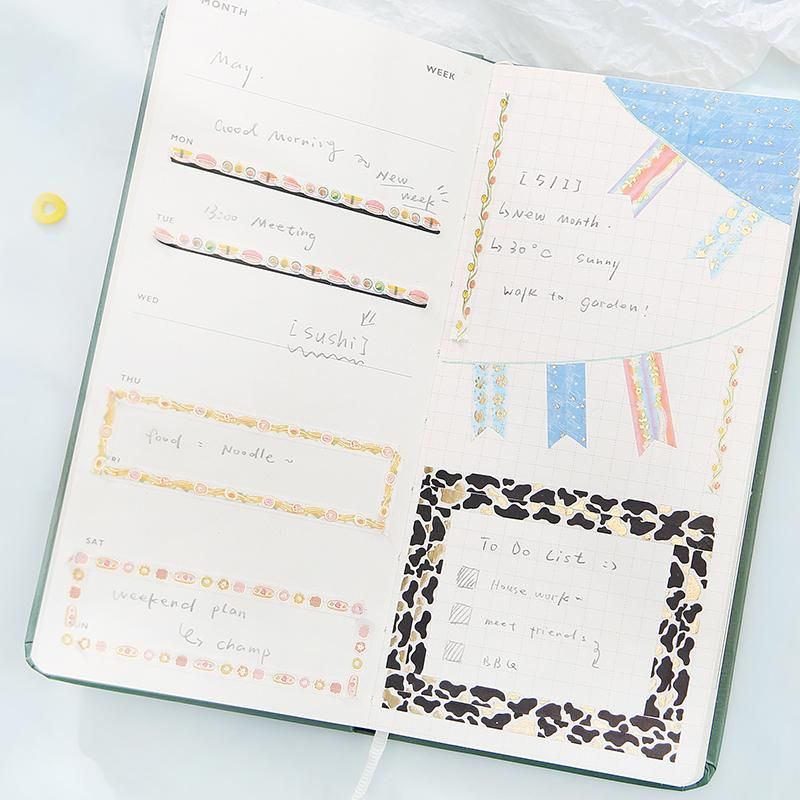 MONTH
May.
WEEK
Good Morning ~
MON
New
week
TUE
13:00 Meeting
WED
[sushi]
THU
food = Noodle ~
FRI
SAT
weekend plan
SUN
↳ champ
[5/1]
↳ New month.
↳ 30°C sunny
walk to garden!
To Do List :)
House work~
meet friends
BBQ